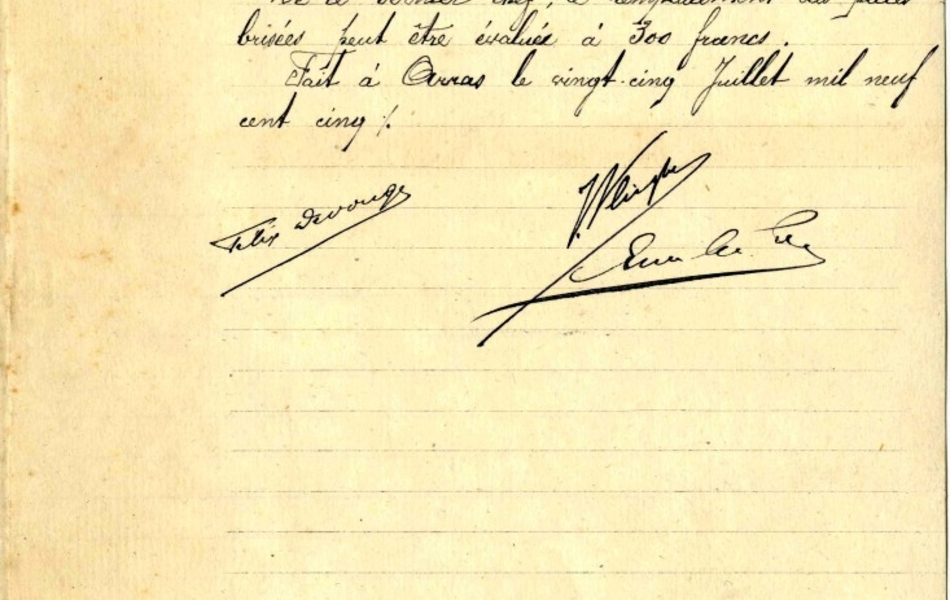 De ce dernier chef, le remplacement des pièces
brisées peut être évalué à 300 francs.
Fait à Arras le vingt-cinq Juillet mil neuf
cent cinq ./.
Felix Devouge